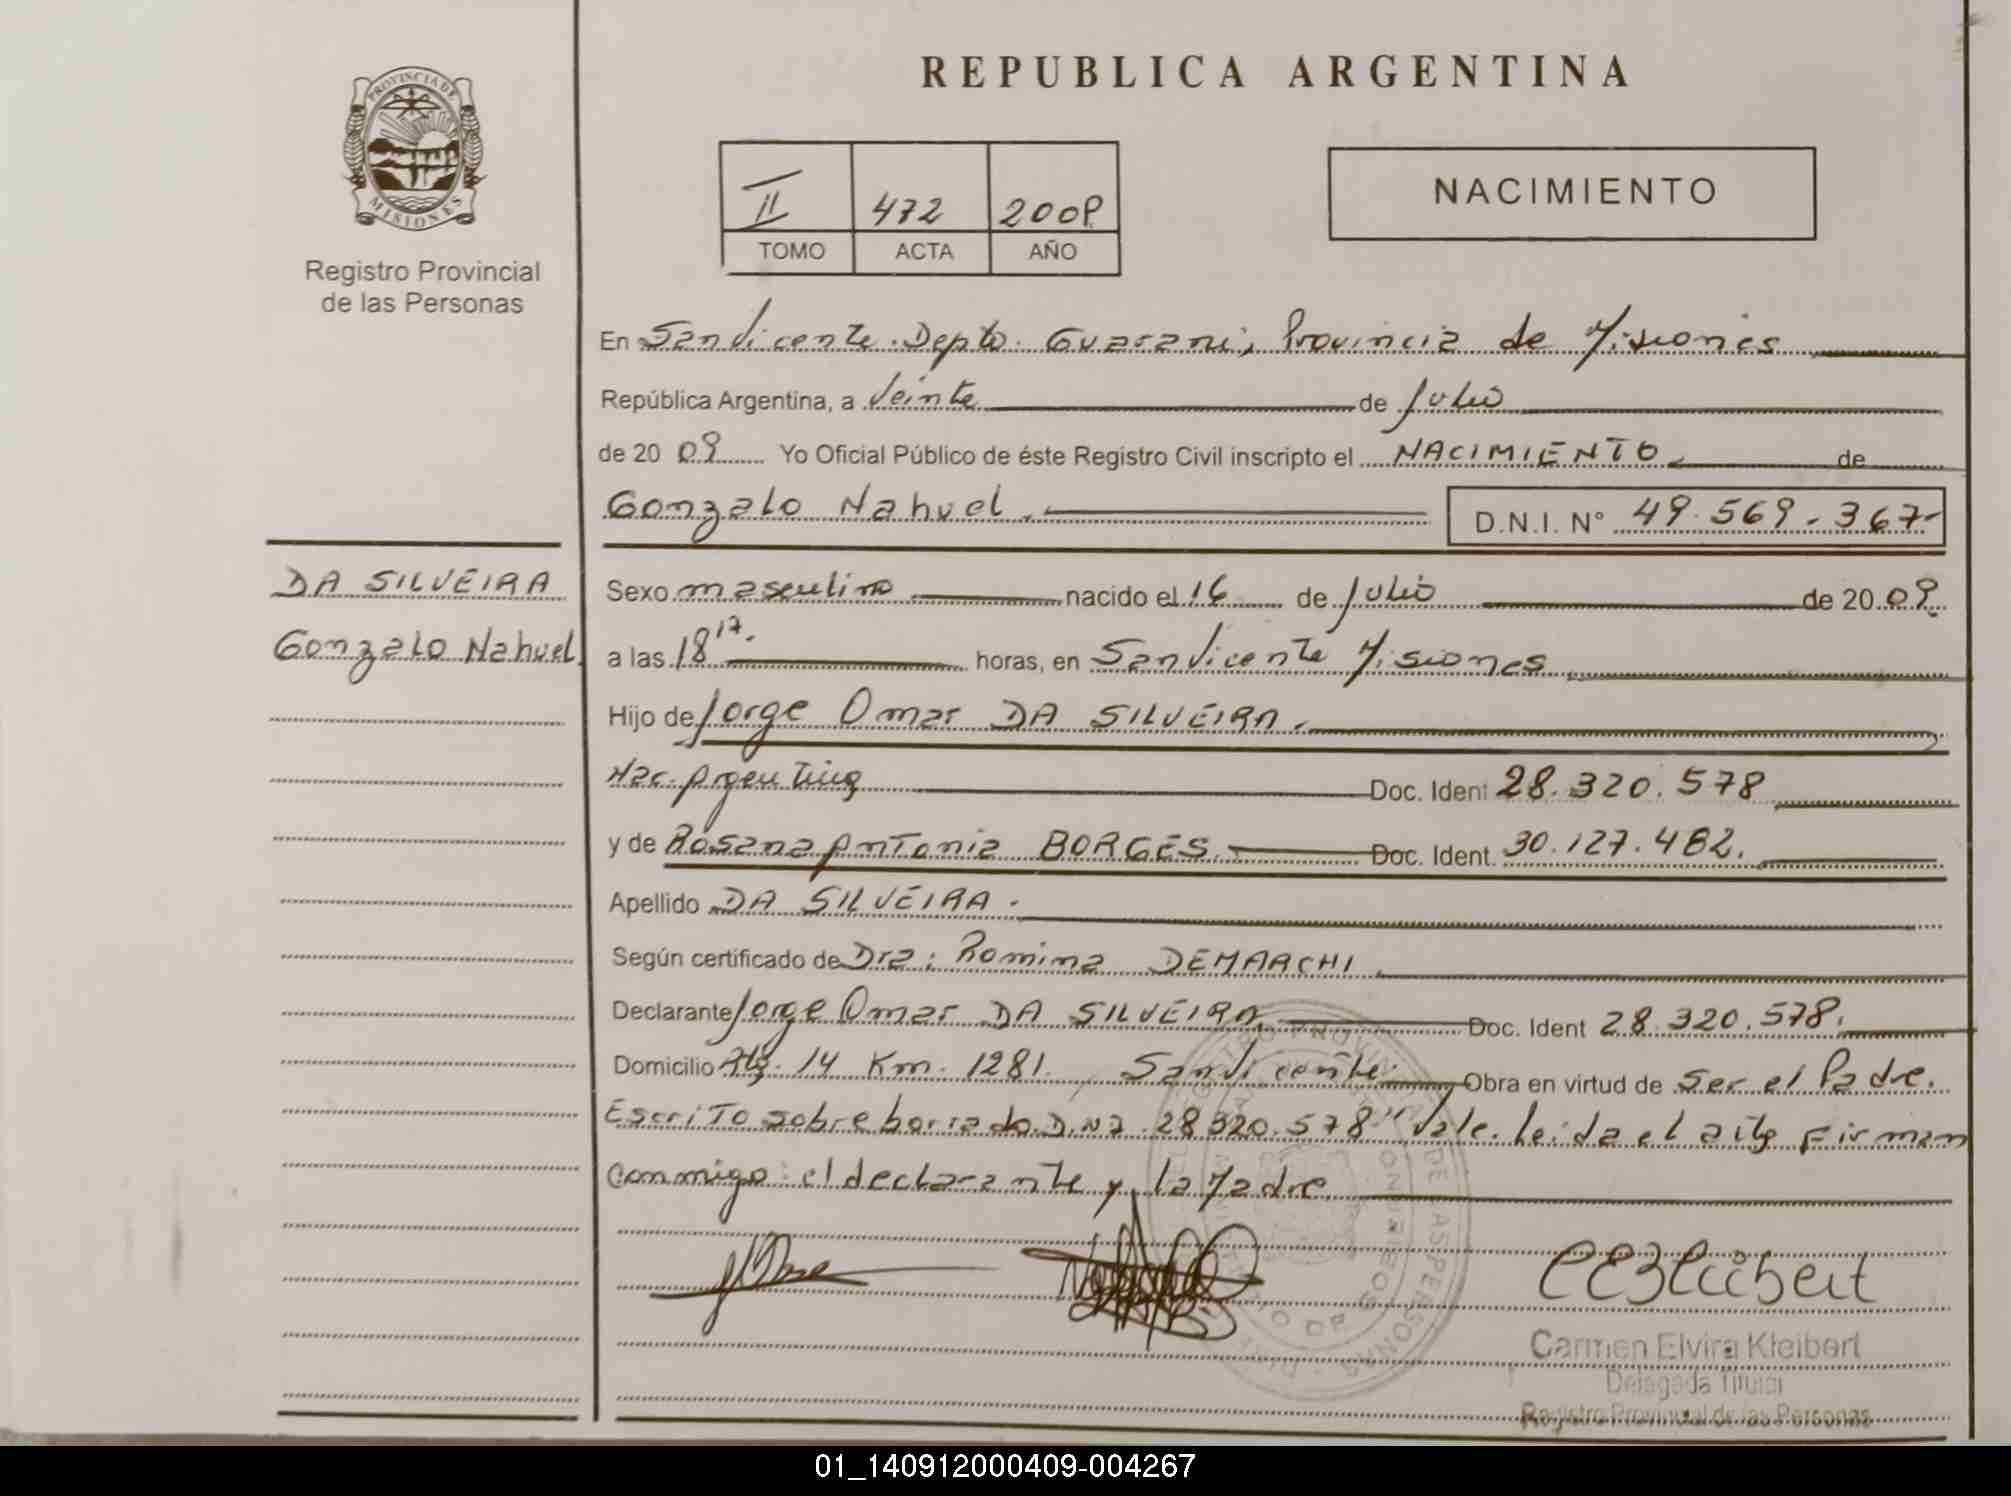 PROVINCIA DE
MISIONES
Registro Provincial
de las Personas
DA SILVEIRA
Gonzalo Nahuel
REPUBLICA ARGENTINA
II 472 2009
TOMO ACTA AÑO
NACIMIENTO
En San Vicente. Depto. Guarani, Provincia de Misiones
República Argentina, a Veinte de Julio
de 20 09 Yo Oficial Público de éste Registro Civil inscripto el NACIMIENTO de
Gonzalo Nahuel. D.N.I. N° 49.569.367-
Sexo masculino nacido el 16 de Julio de 20 09.
a las 18 17. horas, en San Vicente Misiones
Hijo de Jorge Omar DA SILVEIRA.
Nac. Argentina Doc. Ident 28.320.578
y de Rosana Antonia BORGES. Doc. Ident. 30.127.482.
Apellido DA SILVEIRA.
Según certificado de Dra: Romina DEMARCHI.
Declarante Jorge Omar DA SILVEIRA Doc. Ident 28.320.578.
Domicilio Km. 1281. San Vicente Obra en virtud de Ser el Padre.
Escrito sobre borrado 28.320.578" Vale. Leida el acta Firman
conmigo: el declarante y la Madre
Carmen Elvira Kleibert
Delegada Titular
Registro Provincial de las Personas
01_140912000409-004267